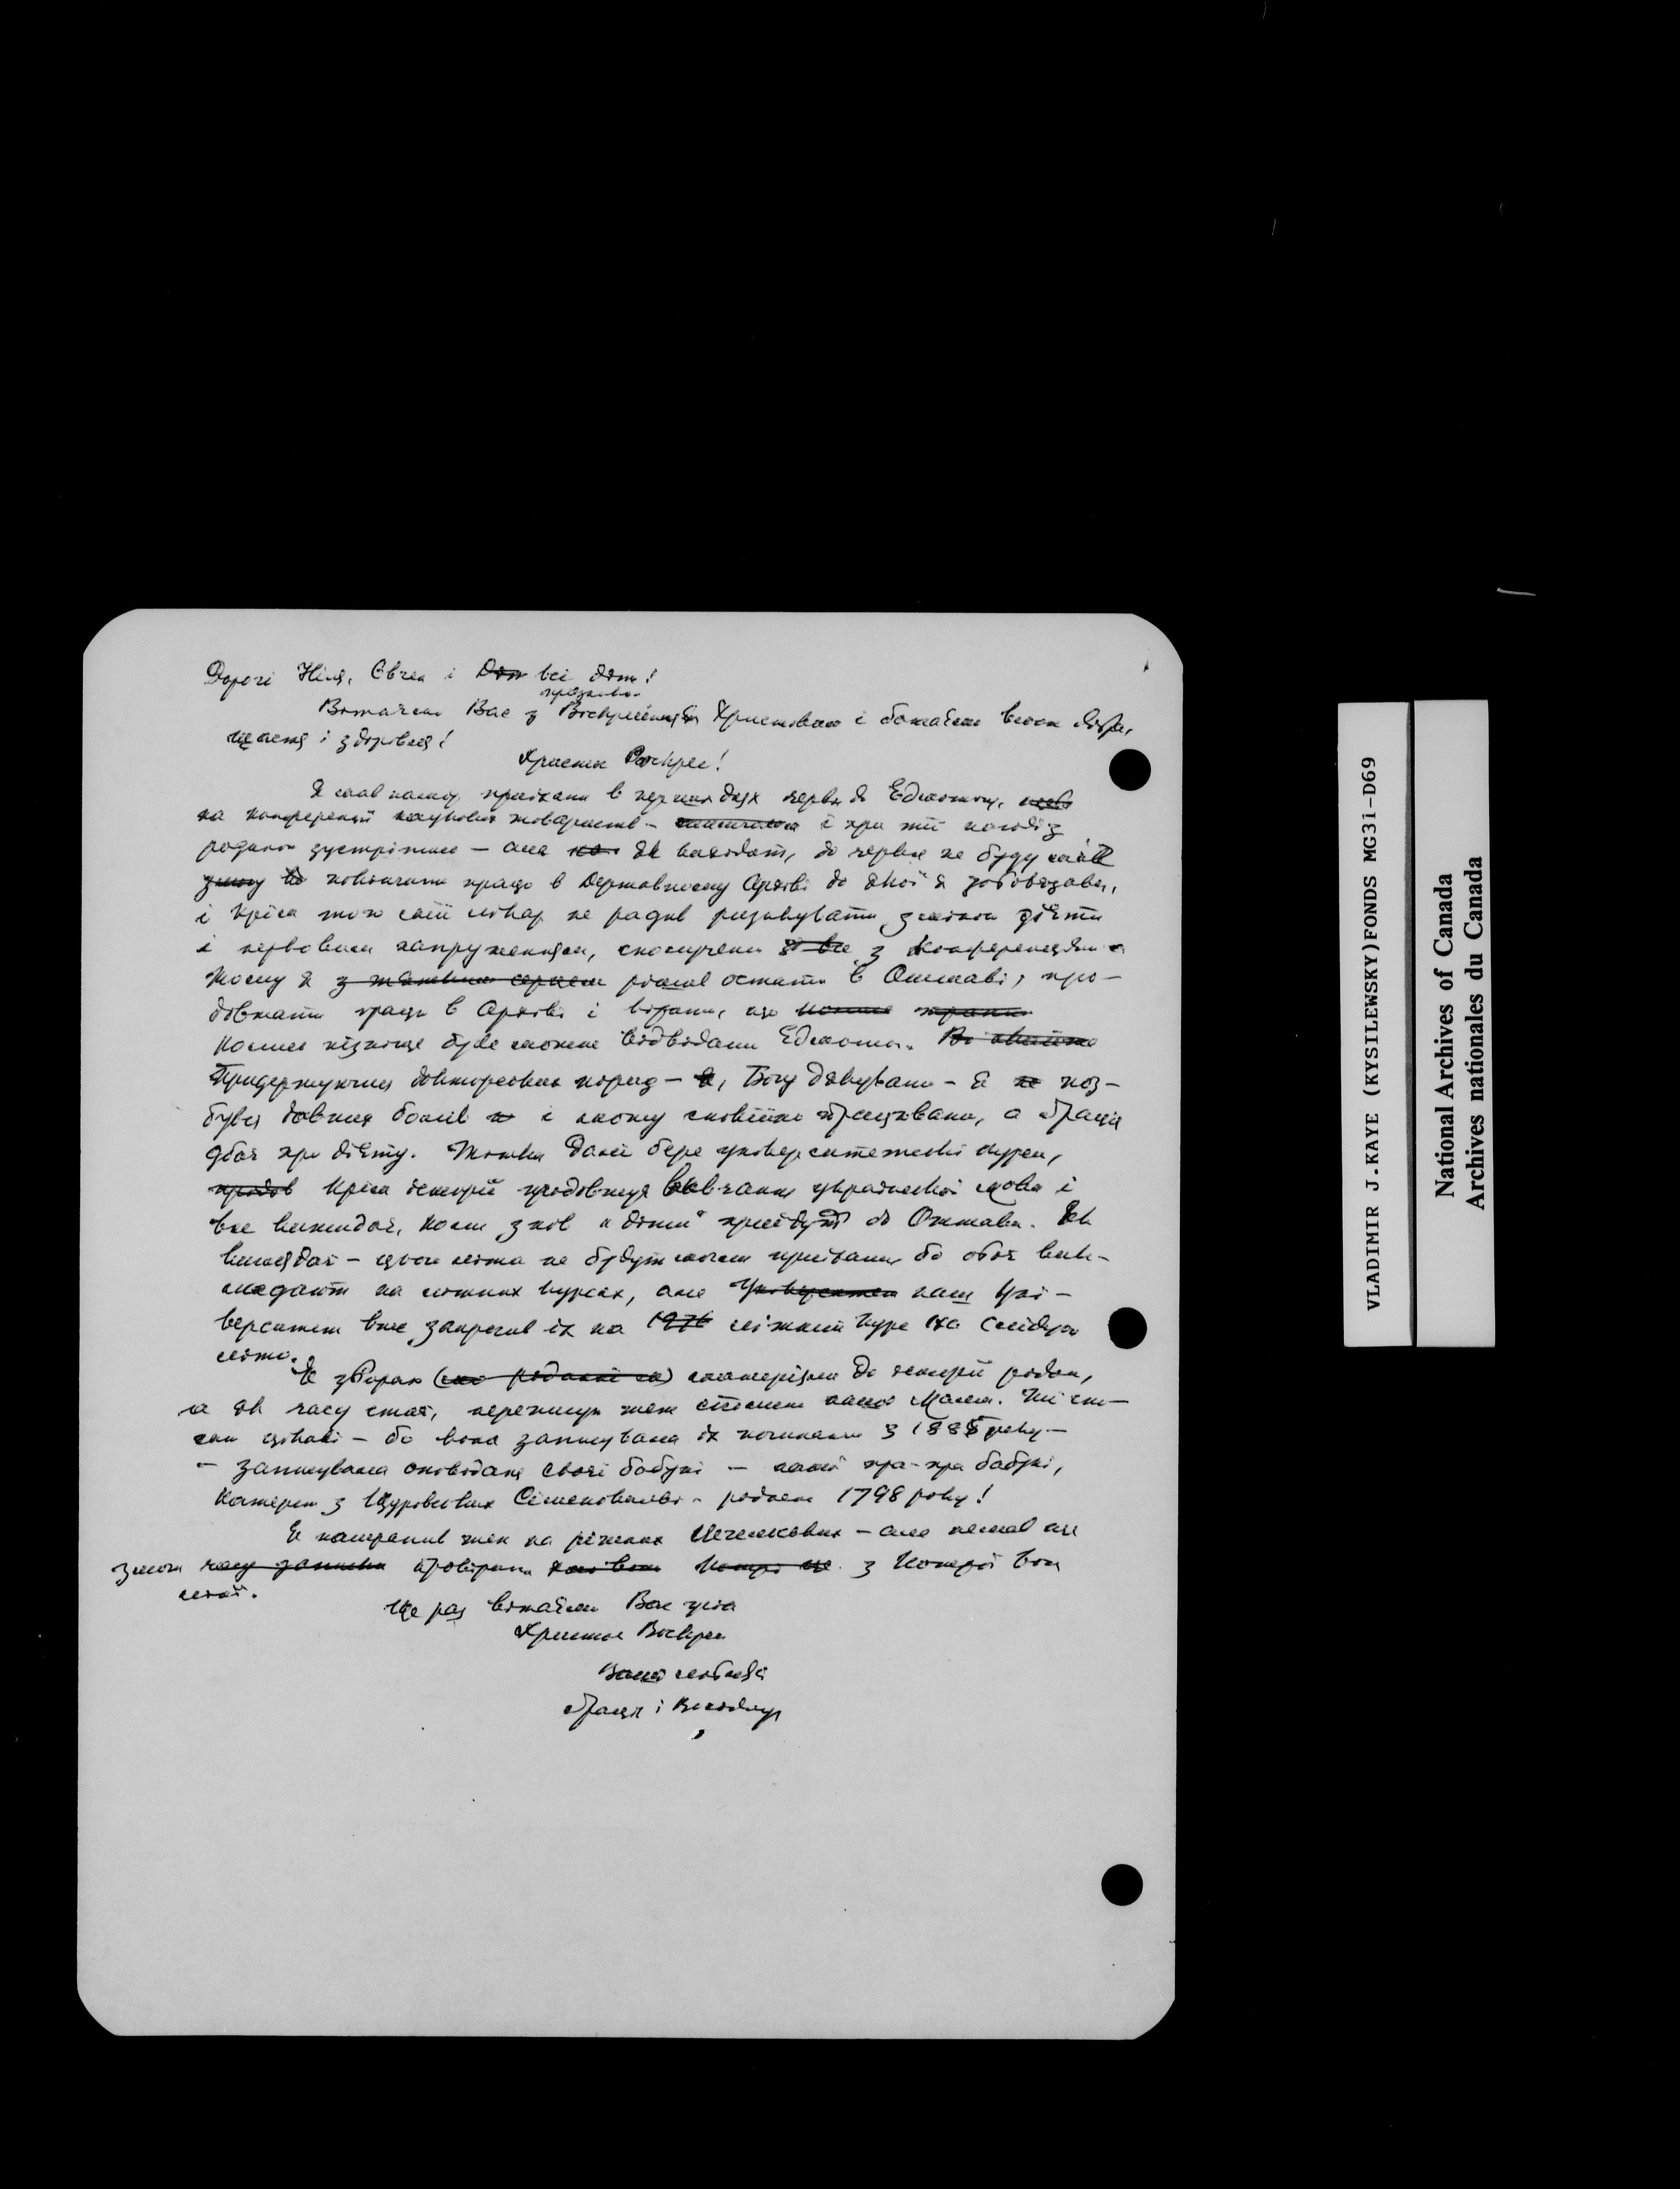 Дорогі Ніля, Євген і всі діти!
празником
Вітаємо Вас з Воскресіння Христового і бажаємо всього добра,
щастя і здоровля!
Христос Воскрес!
Я мав намір приїхати в перших днях червня до Едмонтону,
на конференції наукових товариств – і при тій нагоді з
родиною зустрінемось – але як виходить, до червня не буду міг
покінчити працю в Державному Архіві до якої я зобовязався,
і крім того мій лікар не радив ризикувати зміною дієти
і нервовим напруженням, сполученим з Конференціями
Тому я рішив остати в Оттаві, про-
довжати працю в Архіві і вірити, що
колись пізніше буде можна відвідати Едмонтон.
Придержуючися докторських порад – Богу дякувати – я поз-
бувся давних болів і можу спокійно працювати, а Грація
дбає про дієту. Томко далі бере університетські курси,
крім історії продовжує вивчання української мови і
все виглядає, коли знов "діти" приїдуть до Оттави. Як
виглядає – цього літа не будуть могли приїхати бо обоє вик-
ладають на літних курсах, але наш Уні-
верситет вже запросив їх на літний курс на слідуюче
літо.
Я збираю матеріяли до історії родини,
а як часу стає, переписую теж списки нашої Мами. Ті спи-
ски цікаві – бо вона записувала їх починаючи з 1885 року –
– записувала оповідання своєї бабуні – нашої пра-пра бабуні,
Катерини з Щуровських Сіменовичевої – родженої 1798 року!
Я натрапив теж на річних Цегельських – але не мав ще
змоги провірити з Котрої вони
лінії.
Ще раз вітаємо Вас усіх
Христос Воскрес
Ваші люблячі
Грація і Володимир
VLADIMIR J.KAYE (KYSILEWSKY)FONDS MG31-D69
National Archives of Canada
Archives nationales du Canada